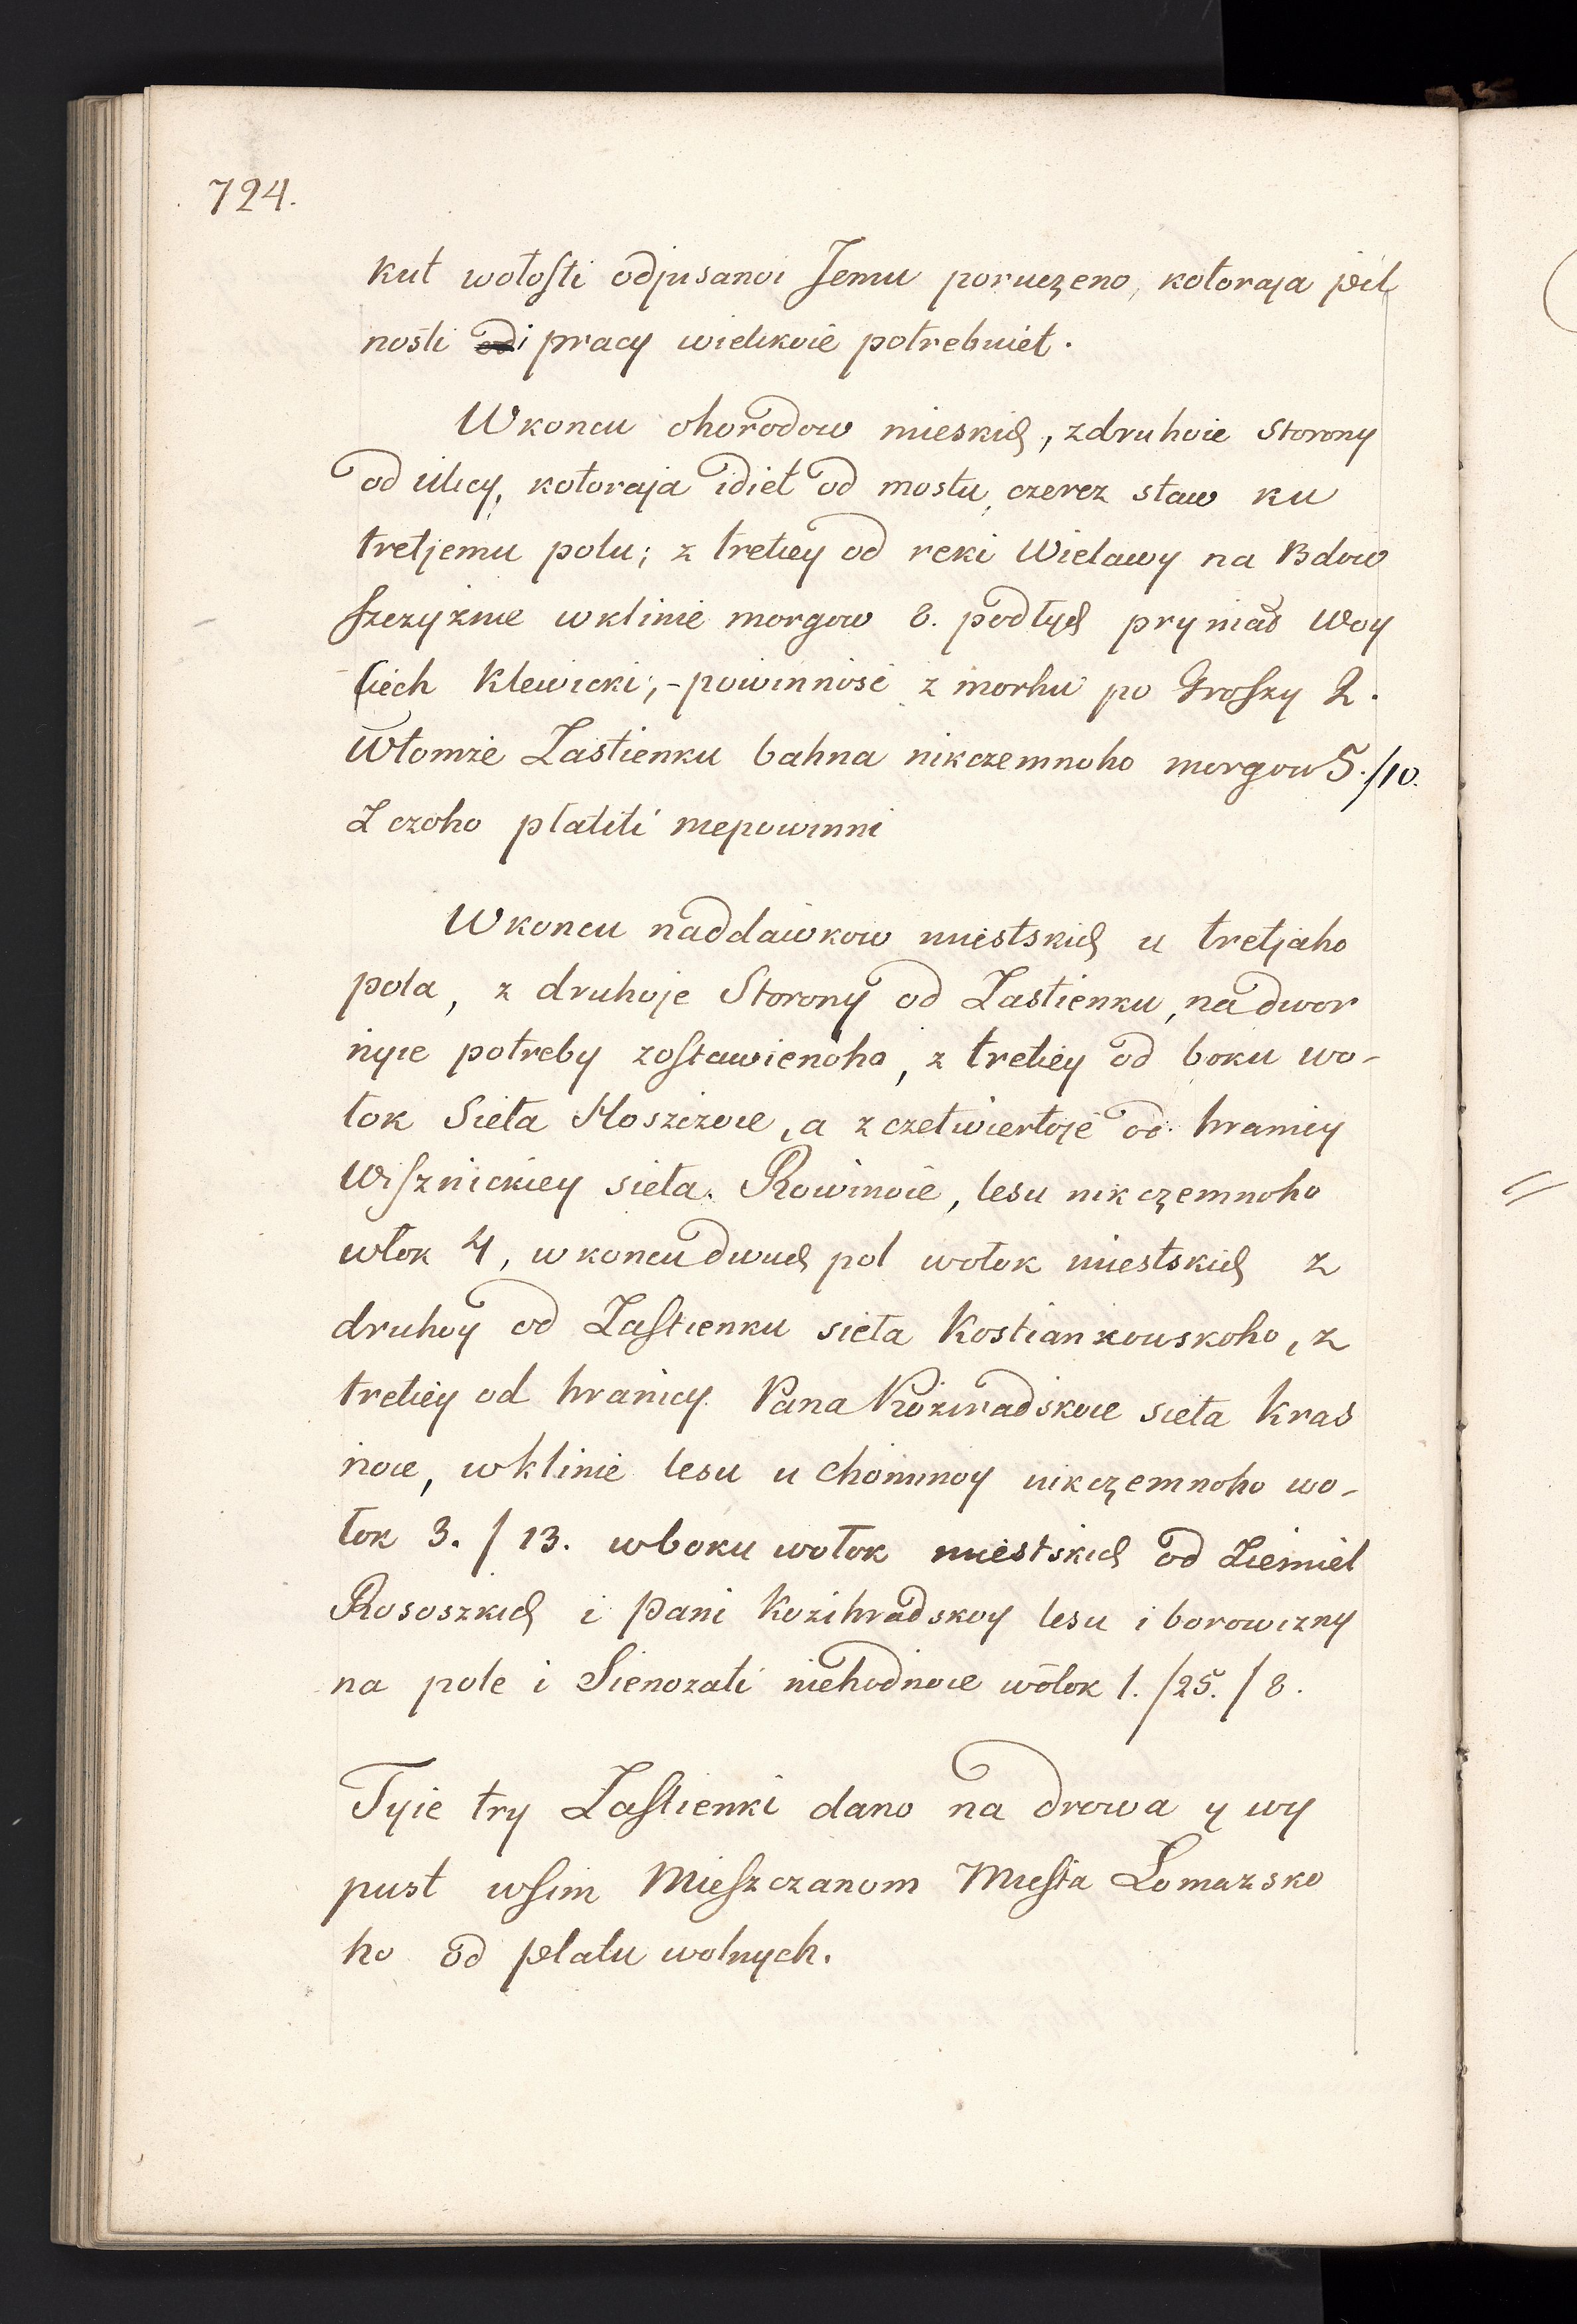 724.
kut wołosti odpisanoi Jemu poruczeno, kotoraja pil
nosti i pracy wielikoie potrebuiet.
W koncu ohorodow mieskich, z druhoie Storony
od ulicy, kotoraja idiet od mostu, czerez staw ku
tretjemu polu; z tretiey od reki Wielawy na Bdow
szczyznie w klinie morgow 8. podłych pryniał Woy
ciech Klewicki; - powinnosć z morhu po Groszy 2.
W tomże Zastienku bahna nikczemnoho morgow 5./10.
Z czoho płatiti niepowinni
W koncu naddawkow miestskich u tretjaho
pola, z druhoje Storony od Zastienku, na dwor
nyie potreby zostawienoho, z tretiey od boku wo-
łok Sieła Hoszizoie, a z czetwiertoje od hranicy
Wisznickiey sieła Rowinoie, lesu nikczemnoho
włok 4, w koncu dwuch pol wołok miestskich z
druhoy od Zastienku sieła Kostiankowskoho, z
tretiey od hranicy Pana Kożiradskoie sieła Kras
noie, w klinie lesu u nikczemnoho wo-
łok 3. / 13. w boku wołok miestskich od Ziemiel
Rososzkich i Pani Kozihradskoy lesu i borowizny
na pole i Sienozati niehodnoie wołok 1. / 25. / 8.
Tyie try Zastienki dano na drowa y wy
pust wsim Mieszczanom Miesta Łomazsko
ho od płatu wolnych.